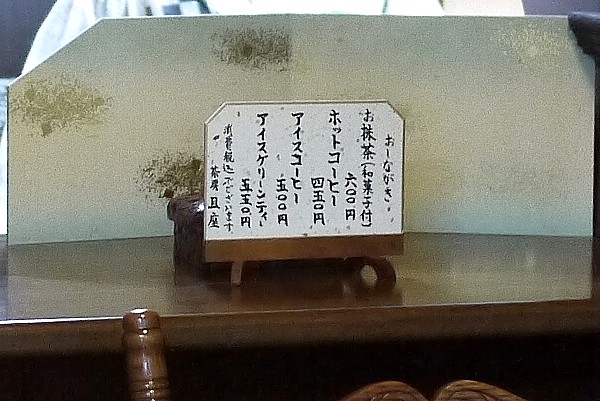 おしながき
お抹茶(和菓子付)
六〇〇円
ホットコーヒー
四五〇円
アイスコーヒー
五〇〇円
アイスグリーンティ
五五〇円
消費税込みでございます
茶房 且座